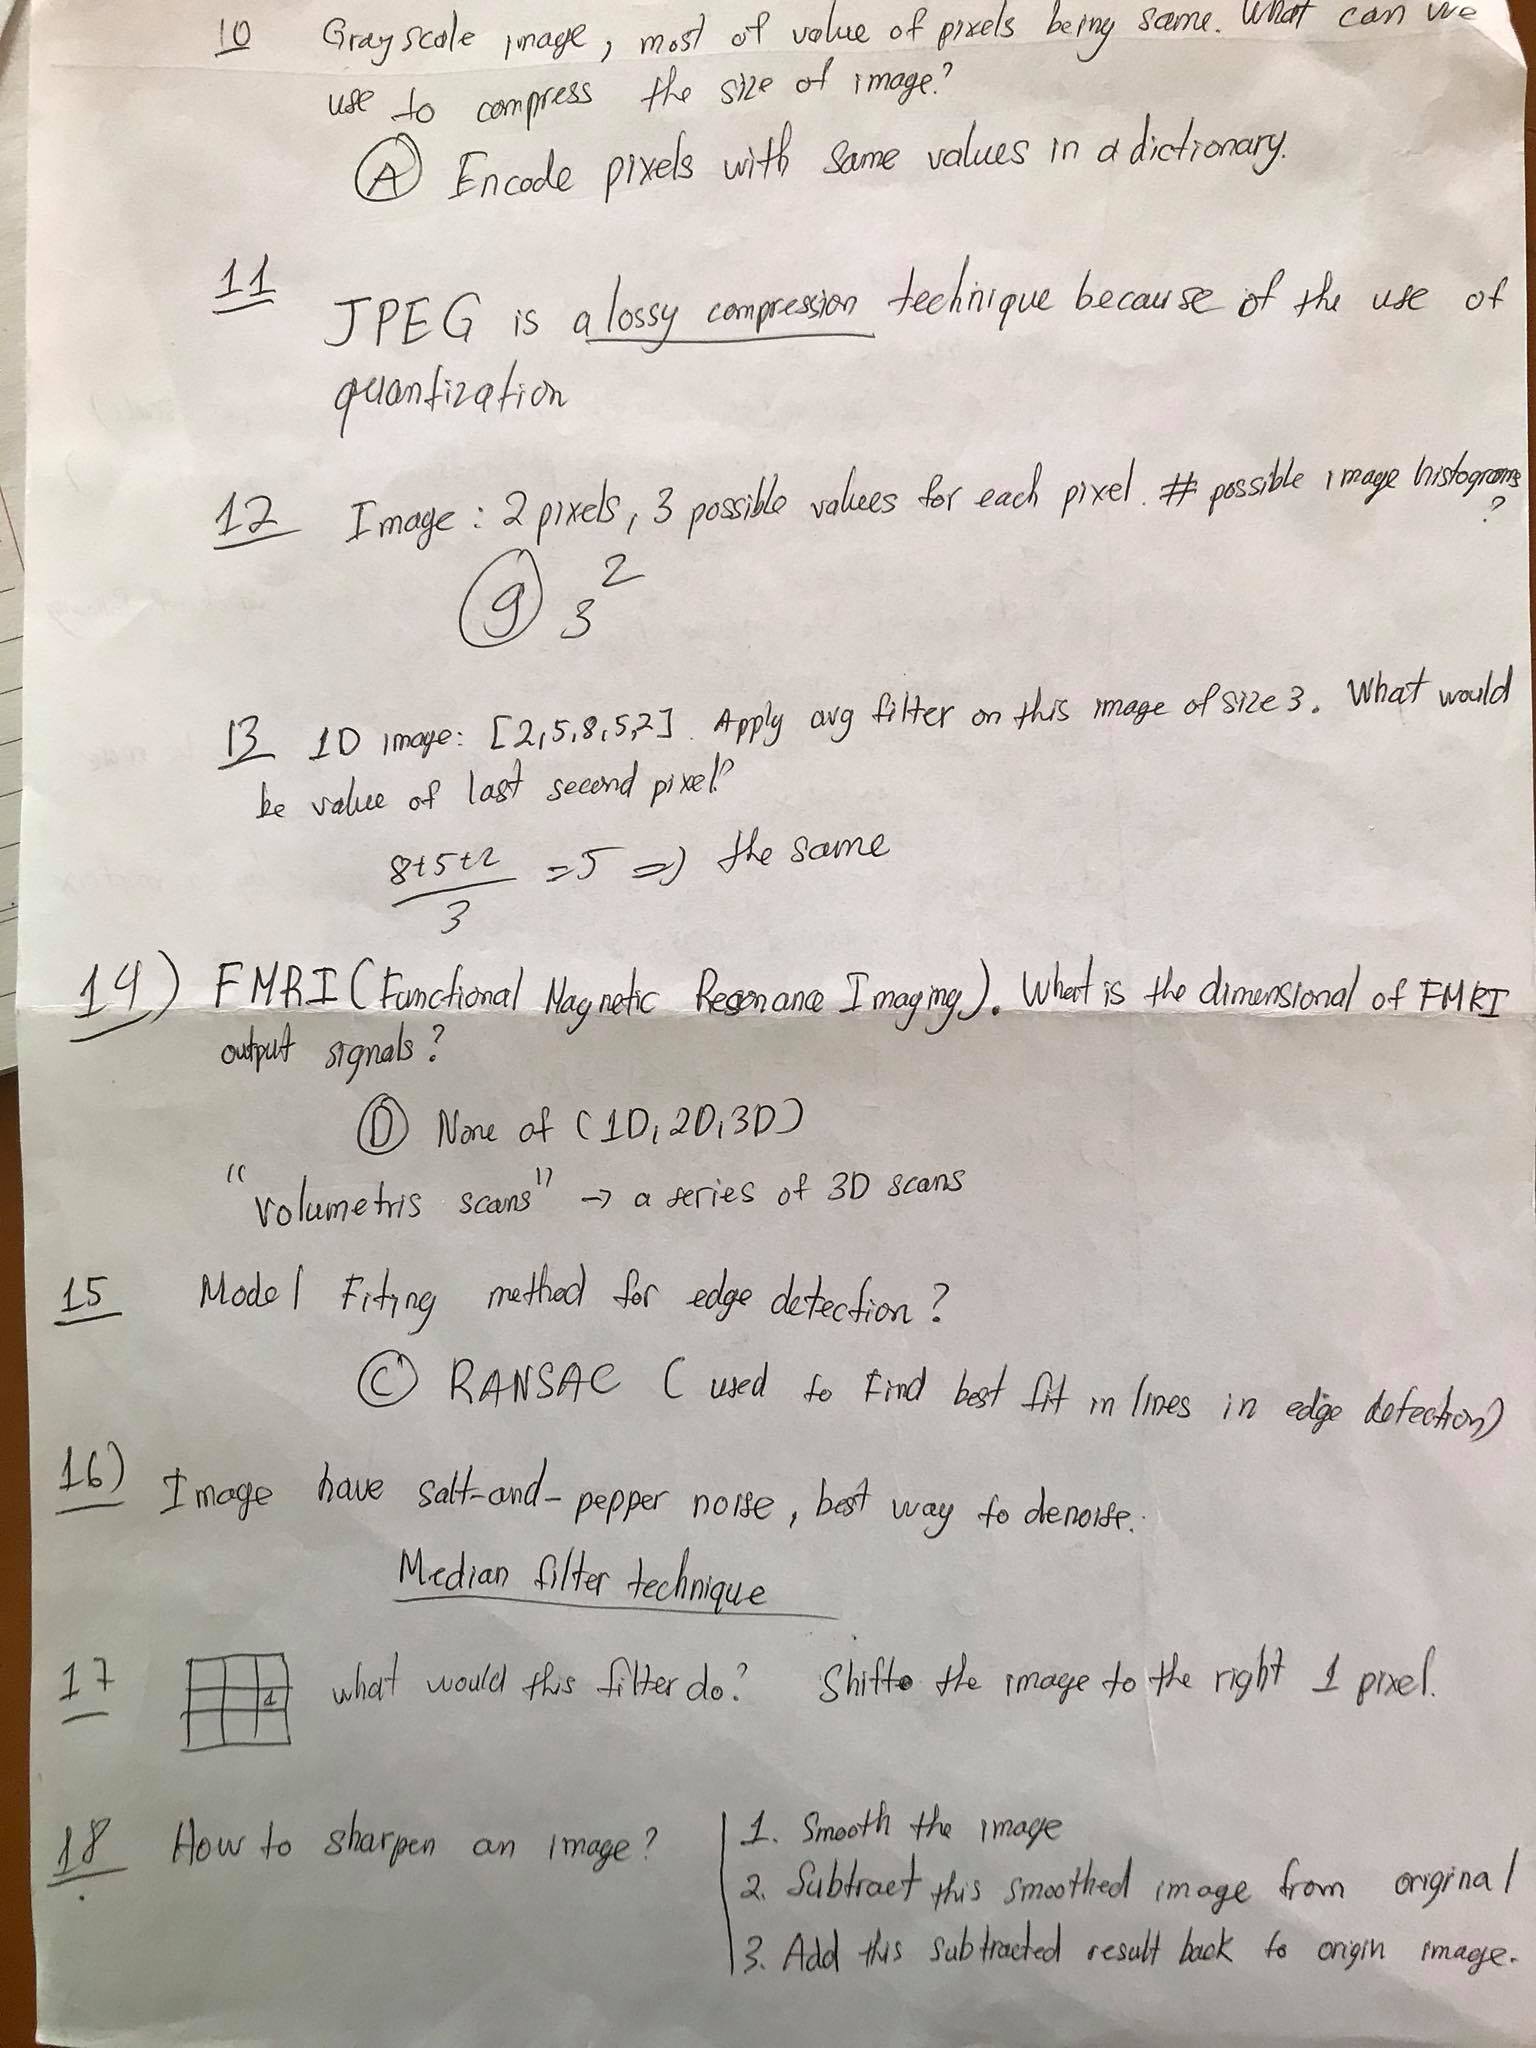 10 Grayscale image, most of value of pixels being same. What can we
use to compress the size of image?
A Encode pixels with same values in a dictionary.
11 JPEG is a lossy compression technique because of the use of
quantization
12 Image: 2 pixels, 3 possible values for each pixel. # possible image histograms
?
9 3²
13 1D image: [2,5,8,5,2]. Apply avg filter on this image of size 3. What would
be value of last second pixel?
8+5+2
3
=5 => the same
14) FMRI (Functional Magnetic Resonance Imaging). What is the dimensional of FMRI
output signals?
D None of (1D, 2D, 3D)
"volumetris scans" → a series of 3D scans
15 Model Fiting method for edge detection?
C RANSAC (used to find best fit in lines in edge detection)
16) Image have salt-and-pepper noise, best way to denoise.
Median filter technique
17 1 what would this filter do? Shift the image to the right 1 pixel.
18 How to sharpen an image?
1. Smooth the image
2. Subtract this smoothed image from original
3. Add this subtracted result back to origin image.